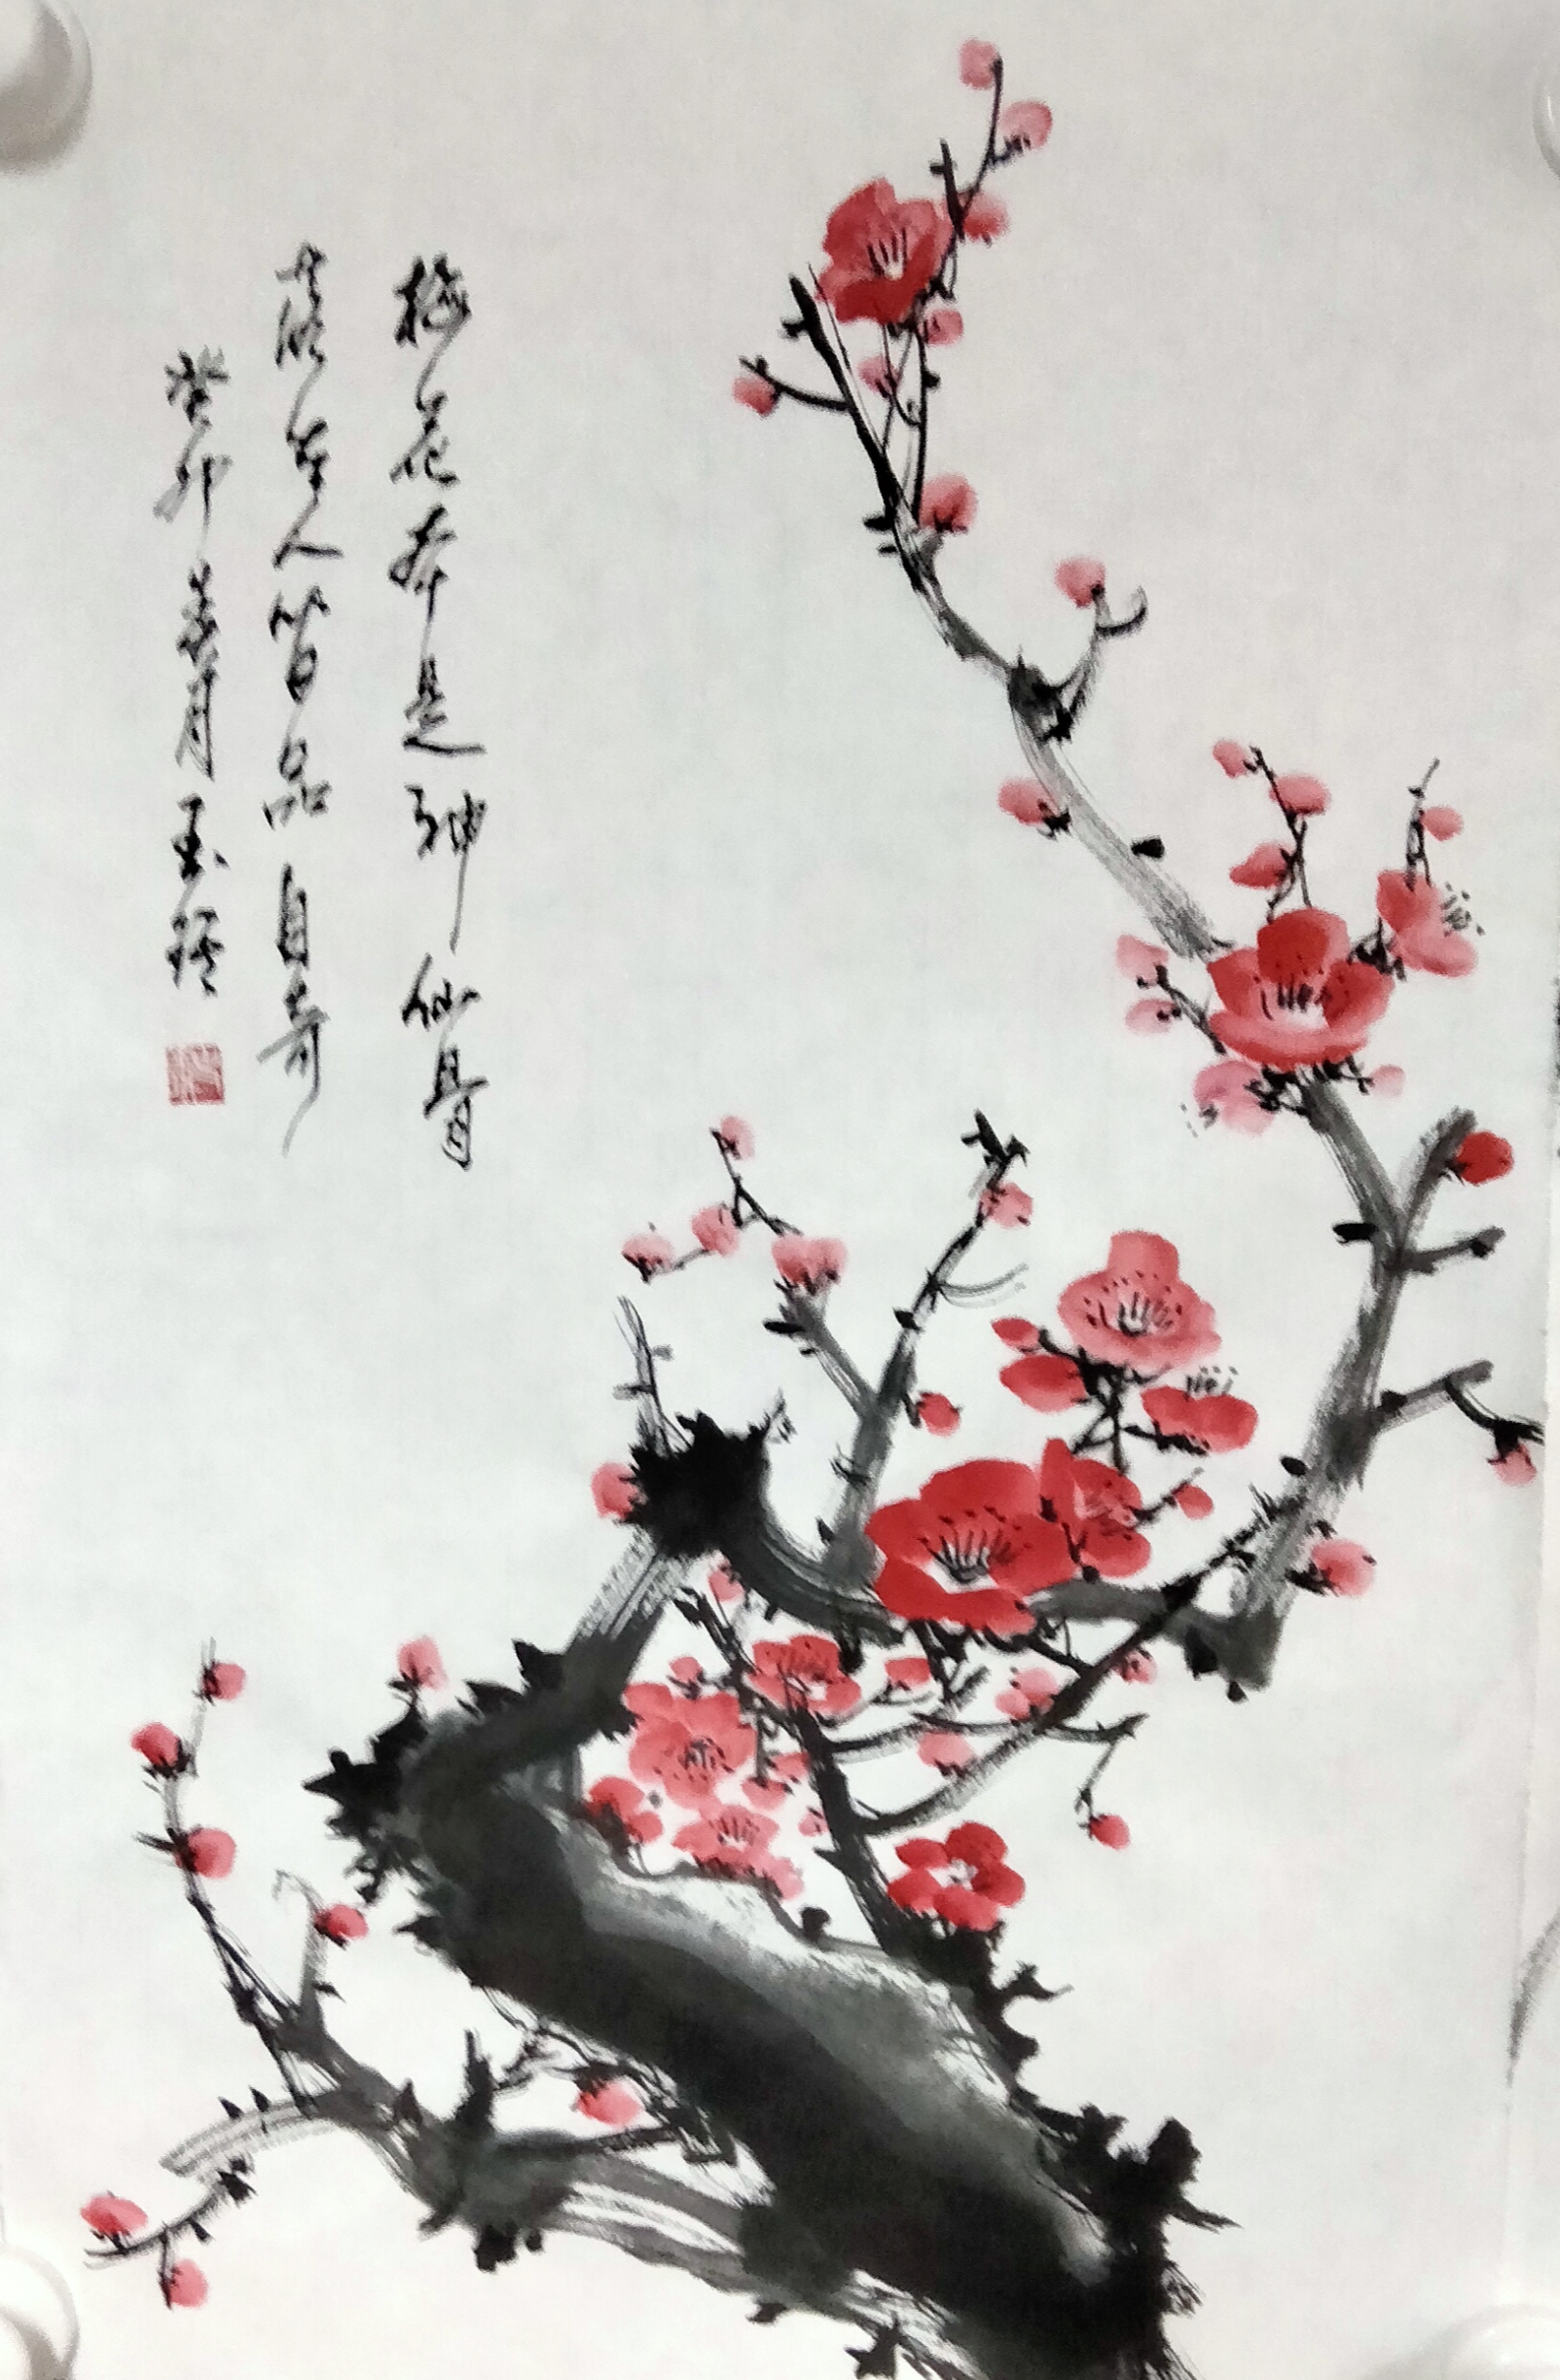 梅花本是神仙骨
落在人皆品自奇
癸卯春月玉